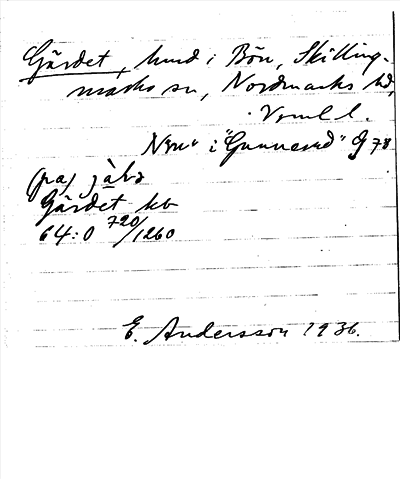 Gärdet, hmd i Bön, Skillings-
marks sn, Nordmarks hd,
Vrml l.
Nrn i "Gunnerud" 978
(pa) jàḷə
Gärdet kb
64:0 720/1260
E. Andersson 1936.